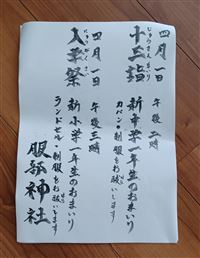 四月一日 午後二時
じゅうさんまいり
十三詣 新中学一年生のおまいり
カバン・制服をお祓いします
四月一日 午後三時
にゅうがくさい
入学祭 新小学一年生のおまいり
ランドセル・制服をお祓いします
服部神社